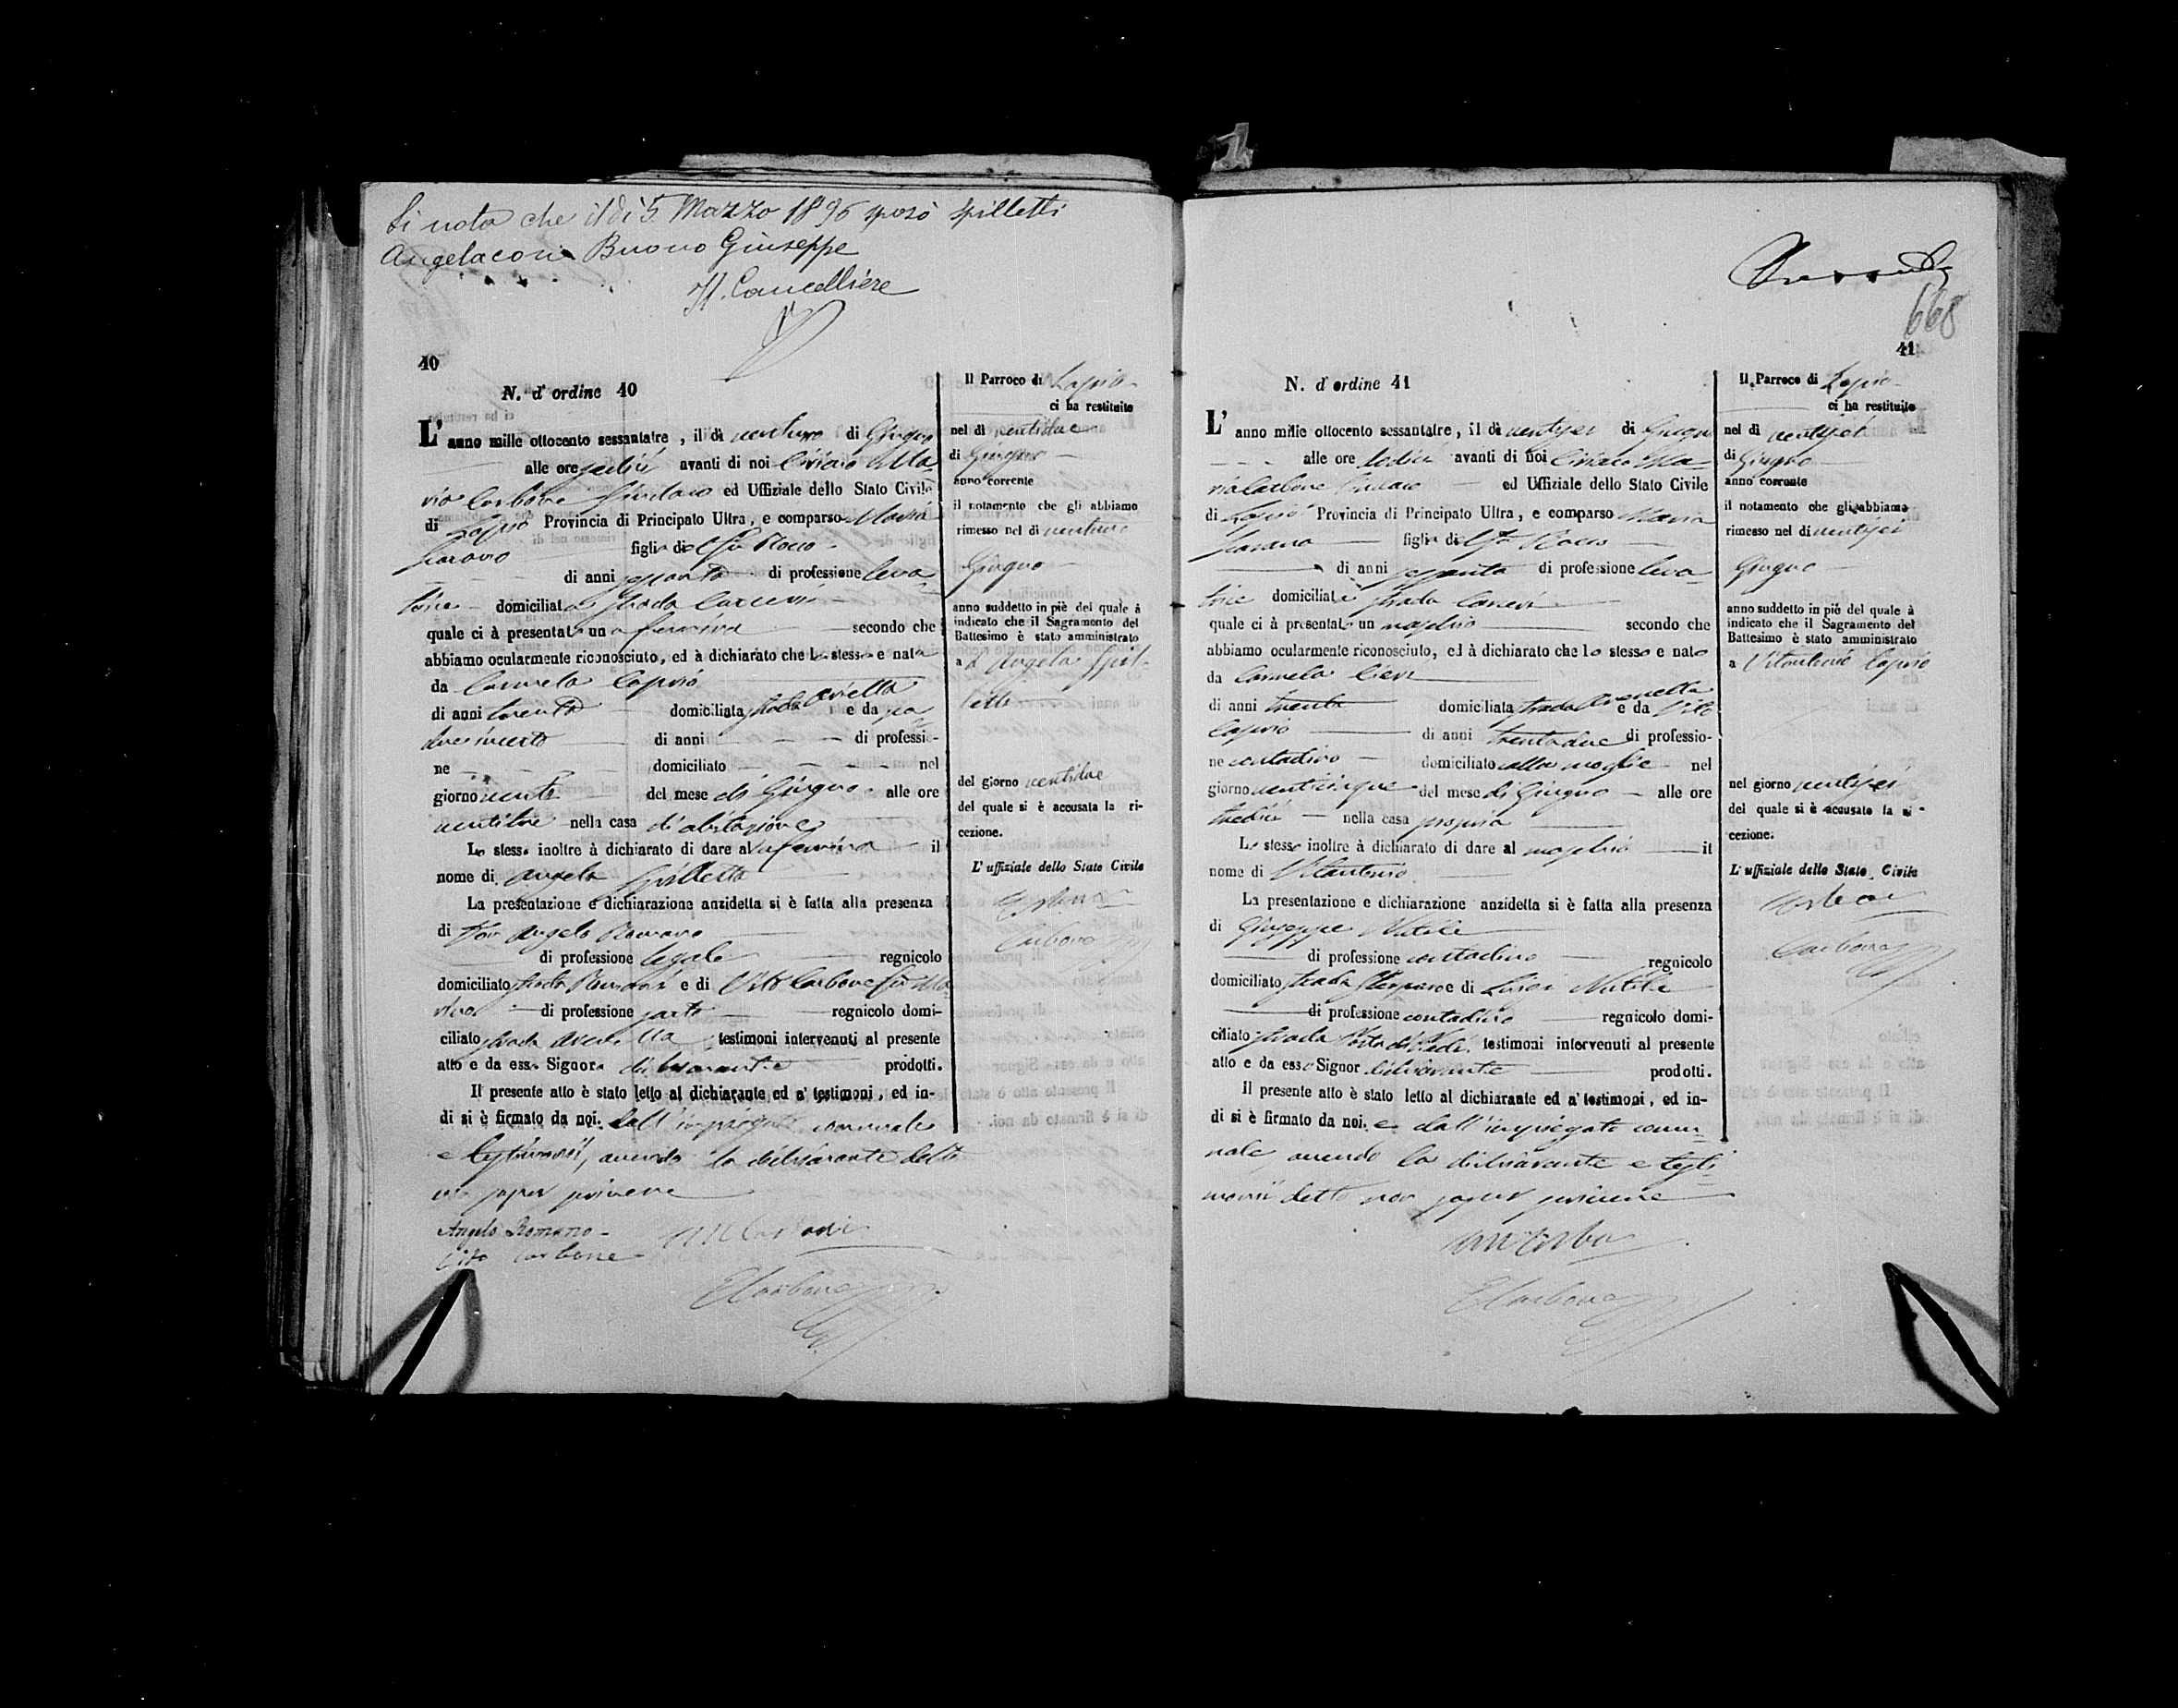 Si nota che il dì 5 Marzo 1896 sposò Spilletti
Angela con Buono Giuseppe
Il Cancelliere
40
N. d' ordine 40
L' anno mille ottocento sessantatre, il dì ventuno di Giugno
alle ore sedici avanti di noi Civiaco Ma-
rio Carbone Sindaco ed Uffiziale dello Stato Civile
di Lapio Provincia di Principato Ultra, e comparso Maria
figlia del fu Rocco
di anni sessanta di professione leva-
trice domiciliata strada Carrera
quale ci à presentato una femina secondo che
abbiamo ocularmente riconosciuto, ed à dichiarato che la stessa e nata
da Carmela Caprio
di anni trenta domiciliata strada e da pa-
dre incerto di anni di professio-
ne domiciliato nel
giorno venti del mese di Giugno alle ore
ventitre nella casa di abitazione
La stessa inoltre à dichiarato di dare alla femina il
nome di Angela Spilletta
La presentazione e dichiarazione anzidetta si è fatta alla presenza
di Don Angelo Romano
di professione legale regnicolo
domiciliato strada e di Vito Carbone fu Ma-
di professione sarto regnicolo domi-
ciliato strada testimoni intervenuti al presente
atto e da essa Signora dichiarante prodotti.
Il presente atto è stato letto al dichiarante ed a' testimoni, ed in-
di si è firmato da noi, dall'impiegato comunale
e testimonii, avendo la dichiarante detto
non saper scrivere
Angelo Romano
Vito Carbone
Carbone
Il Parroco di Lapio
ci ha restituito
nel dì ventidue
di Giugno
anno corrente
il notamento che gli abbiamo
rimesso nel dì ventuno
Giugno
anno suddetto in piè del quale à
indicato che il Sagramento del
Battesimo è stato amministrato
a Angela Spil-
letta
del giorno ventidue
del quale si è accusata la ri-
cezione.
L' uffiziale dello Stato Civile
Carbone
668
41
N. d' ordine 41
L' anno mille ottocento sessantatre, il dì ventisei di Giugno
alle ore sedici avanti di noi Civiaco Ma-
rio Carbone Sindaco ed Uffiziale dello Stato Civile
di Lapio Provincia di Principato Ultra, e comparso Maria
figlia del fu Rocco
di anni sessanta di professione leva-
trice domiciliata strada Carrera
quale ci à presentato un maschio secondo che
abbiamo ocularmente riconosciuto, ed à dichiarato che lo stesso e nato
da Carmela
di anni trenta domiciliata strada e da Vito
Caprio di anni trentadue di professio-
ne contadino domiciliato colla moglie nel
giorno venticinque del mese di Giugno alle ore
tredici nella casa propria
La stessa inoltre à dichiarato di dare al maschio il
nome di Vitantonio
La presentazione e dichiarazione anzidetta si è fatta alla presenza
di Giuseppe Natile
di professione contadino regnicolo
domiciliato strada e di Luigi Natile
di professione contadino regnicolo domi-
ciliato strada testimoni intervenuti al presente
atto e da essa Signora dichiarante prodotti.
Il presente atto è stato letto al dichiarante ed a' testimoni, ed in-
di si è firmato da noi, e dall'impiegato comu-
nale, avendo la dichiarante e testi-
monii detto non saper scrivere
Carbone
Il Parroco di Lapio
ci ha restituito
nel dì ventisei
di Giugno
anno corrente
il notamento che gli abbiamo
rimesso nel dì ventisei
Giugno
anno suddetto in piè del quale à
indicato che il Sagramento del
Battesimo è stato amministrato
a Vitantonio Caprio
nel giorno ventisei
del quale si è accusata la ri-
cezione.
L' uffiziale dello Stato Civile
Carbone